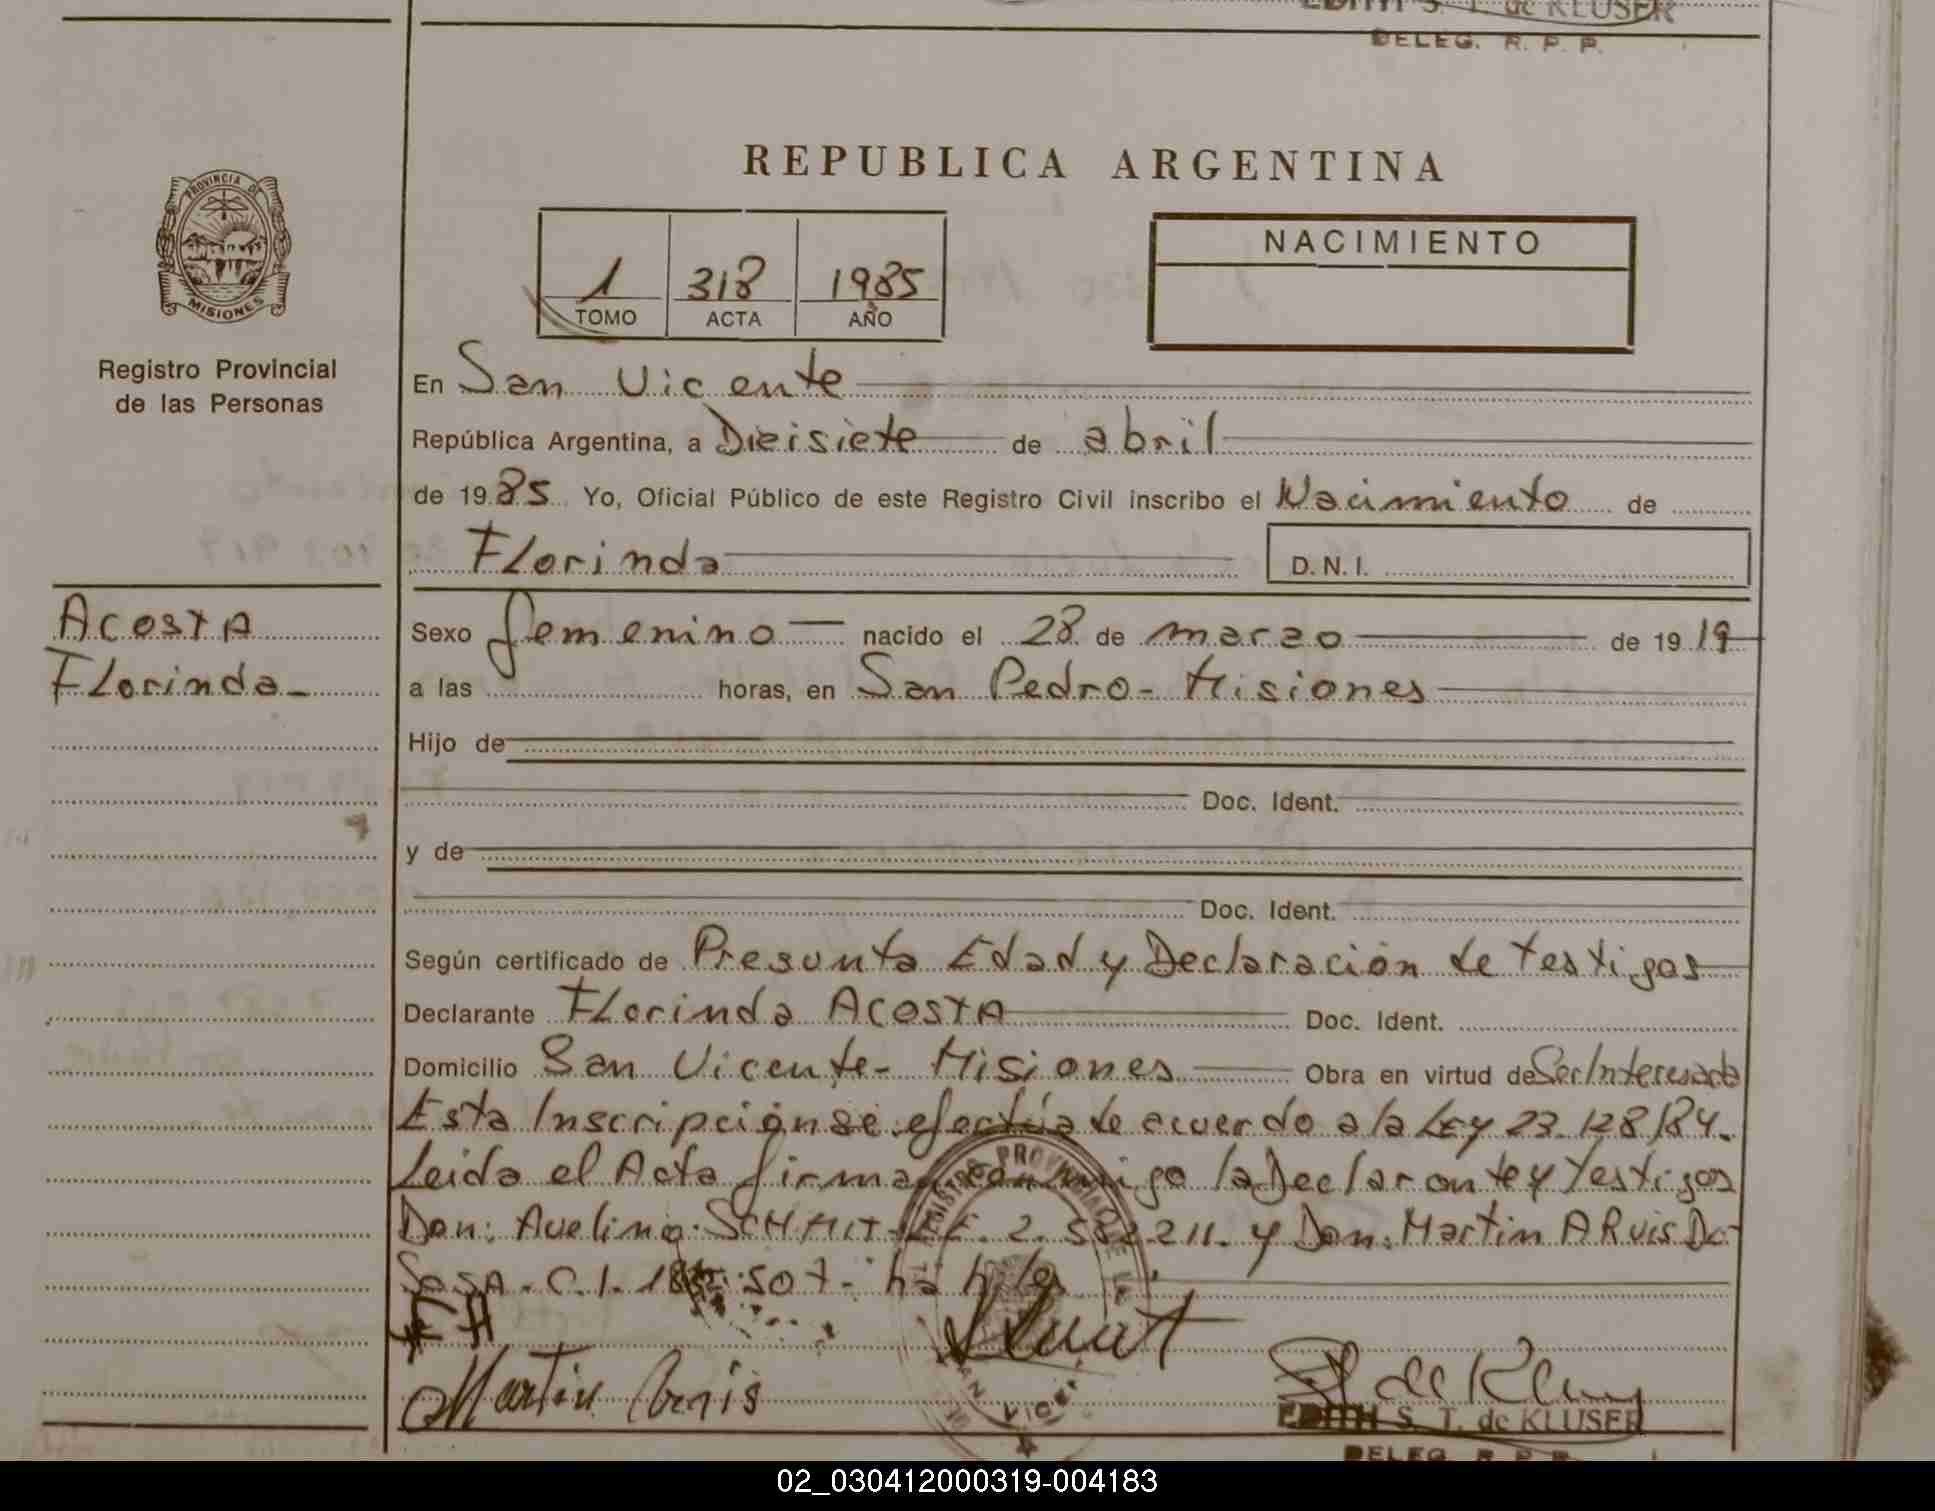 EDITH S. T. de KLUSER
DELEG. R. P. P.
REPUBLICA ARGENTINA
PROVINCIA DE
MISIONES
Registro Provincial
de las Personas
1 318 1985
TOMO ACTA AÑO
NACIMIENTO
En San Vicente
República Argentina, a Dieisiete de abril
de 1985 Yo, Oficial Público de este Registro Civil inscribo el Nacimiento de
Florinda D.N.I.
Acosta
Florinda
Sexo femenino nacido el 28 de marzo de 1919
a las horas, en San Pedro - Misiones
Hijo de
Doc. Ident.
y de
Doc. Ident.
Según certificado de Presunta Edad y Declaración de testigos
Declarante Florinda Acosta Doc. Ident.
Domicilio San Vicente - Misiones Obra en virtud de Ser Interesada
Esta Inscripción se efectúa de acuerdo a la Ley 23.128/84.
Leida el Acta firman conmigo la Declarante y Testigos
Don: Avelino SCHMIT - L.E. 2.582.211. y Don: Martin ARvis Da
SosA - C.I. .507 - habiles
Martin Arvis
EDITH S. T. de KLUSER
DELEG. R. P. P.
02_030412000319-004183